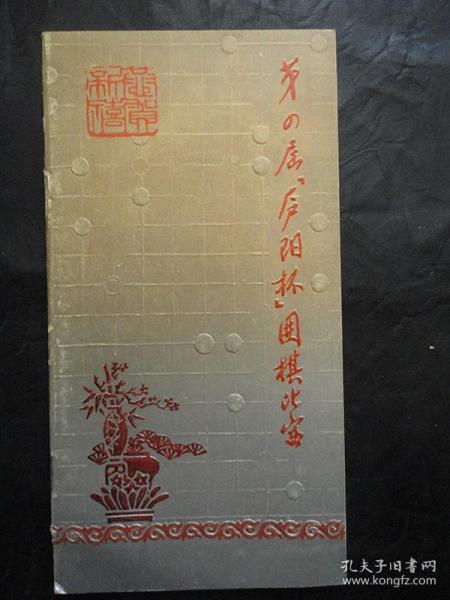 恭賀
新禧
第四届「庐阳杯」围棋比赛
孔夫子旧书网
www.kongfz.com